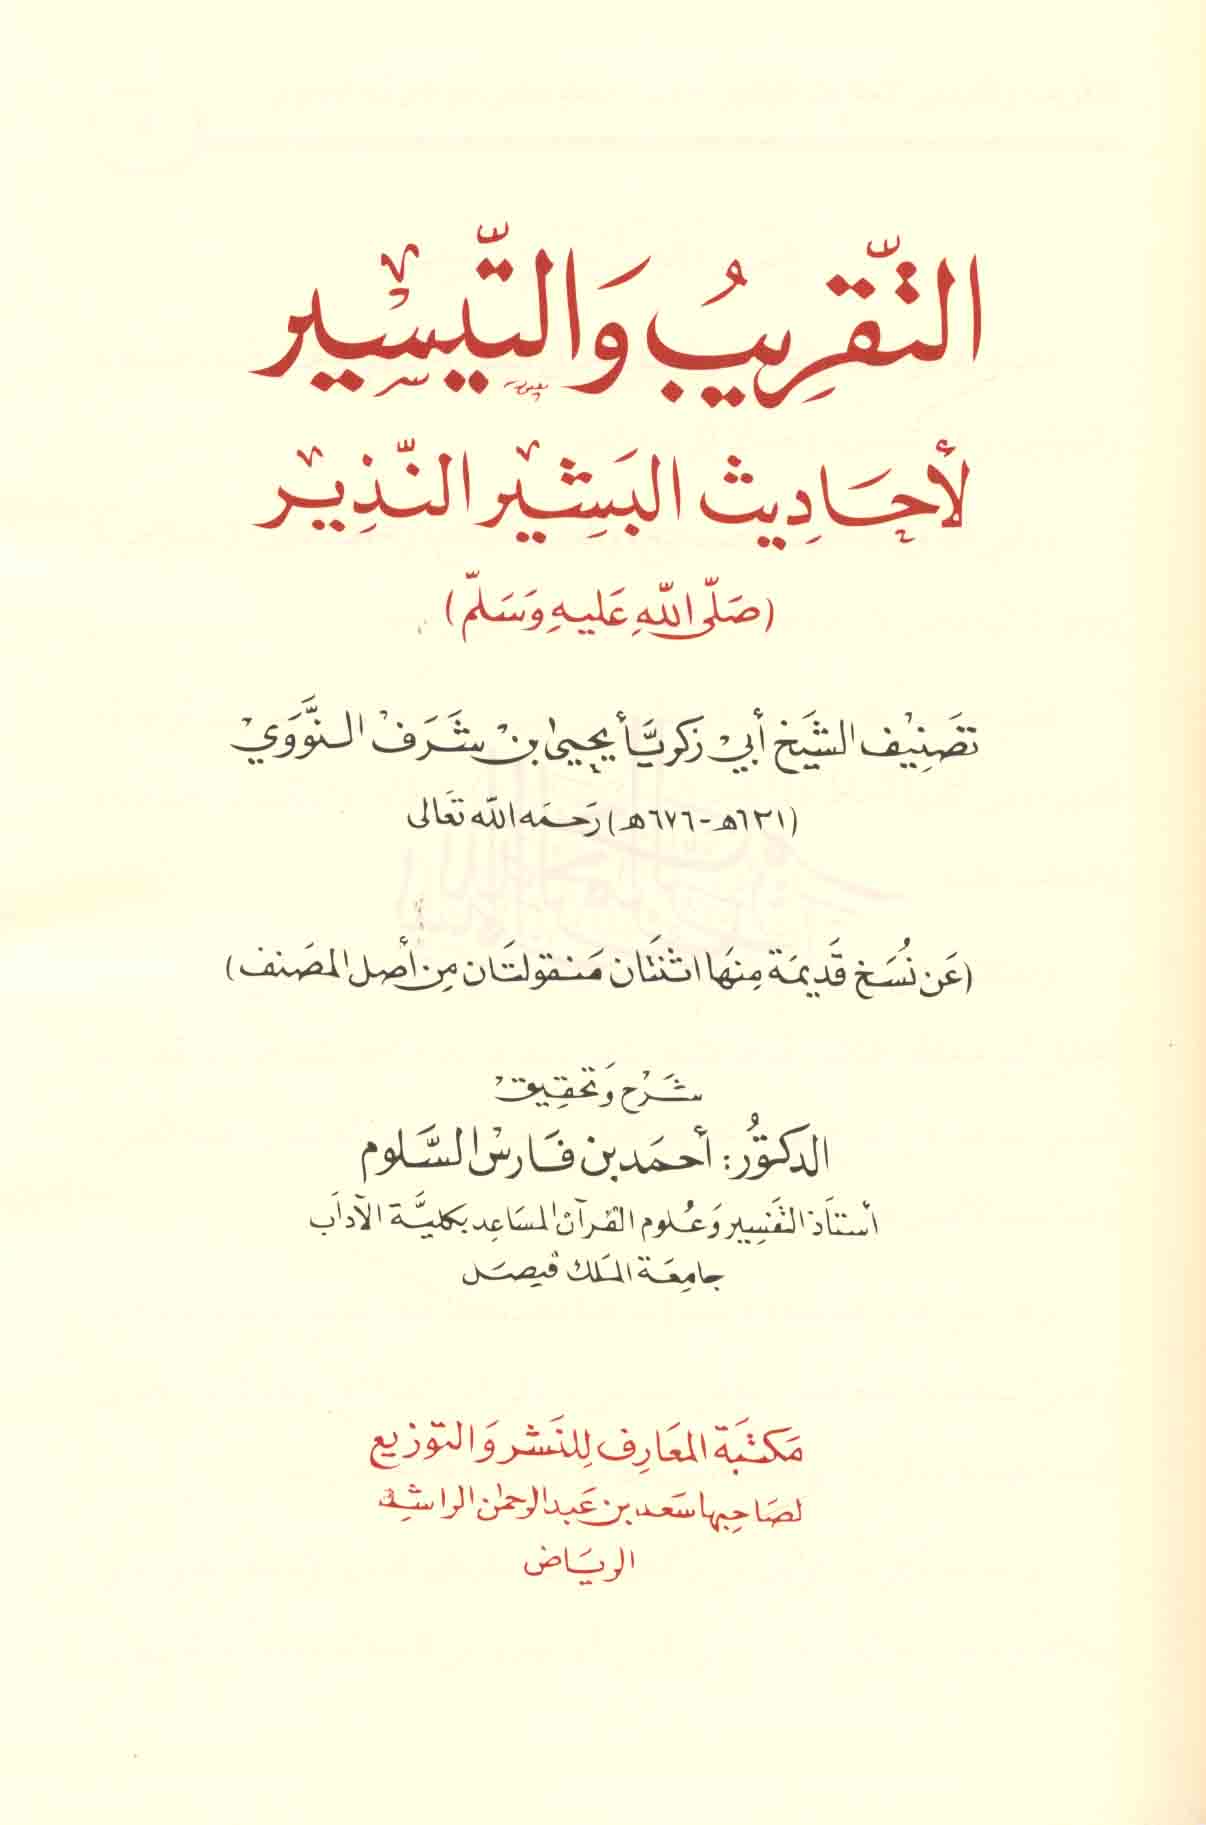 التَّقْرِيبُ وَالتَّيْسِير
لأَحَادِيث البَشِير النَّذِير
(صَلّى اللهِ عَليهِ وَسَلّم)
تصَنِيف الشَيخ أبي زكريَّا يحيىٰ بن شَرَف النَّوَوَي
(٦٣١هـ - ٦٧٦هـ) رَحمَه الله تعَالى
(عَن نُسَخ قَديمَة مِنهَا اثنتَان مَنقولتَان مِن أصل المصَنف)
شَرح وَتحقِيق
الدكتوُر: أحمَد بن فَارس السَّلوم
أستَاذ التفَسِير وَعُلوم القرآن المسَاعِد بكليَّة الآدَاب
جامعَة الملك فيصَل
مَكتبَة المعَارِف لِلنَشر وَالتوزيع
لصَاحِبهَا سَعد بن عَبد الرحمٰن الراشِد
الريَاض